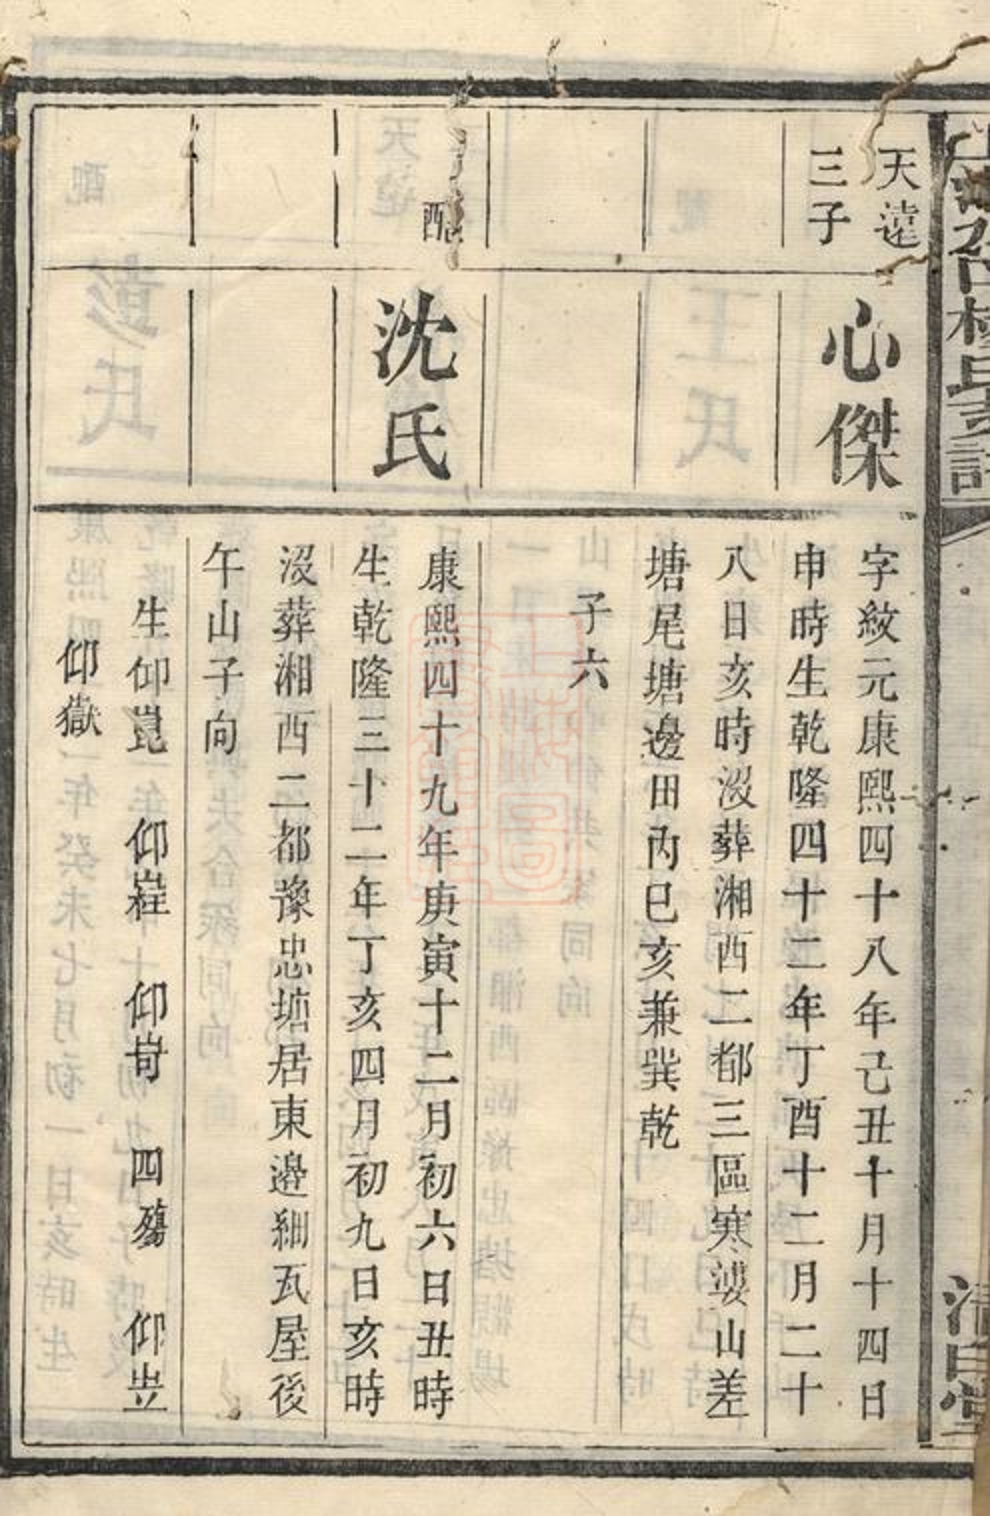 天遠
三子
心傑
字紋元康熙四十八年己丑十月十四日
申時生乾隆四十二年丁酉十二月二十
八日亥時沒葬湘西二都三區寒婆山差
塘尾塘邊田內巳亥兼巽乾
子六
配
沈氏
康熙四十九年庚寅十二月初六日丑時
生乾隆三十二年丁亥四月初九日亥時
沒葬湘西二都豫忠塘居東邊細瓦屋後
午山子向
生仰崑 仰嵀 仰峕 四殤 仰岦
仰嶽